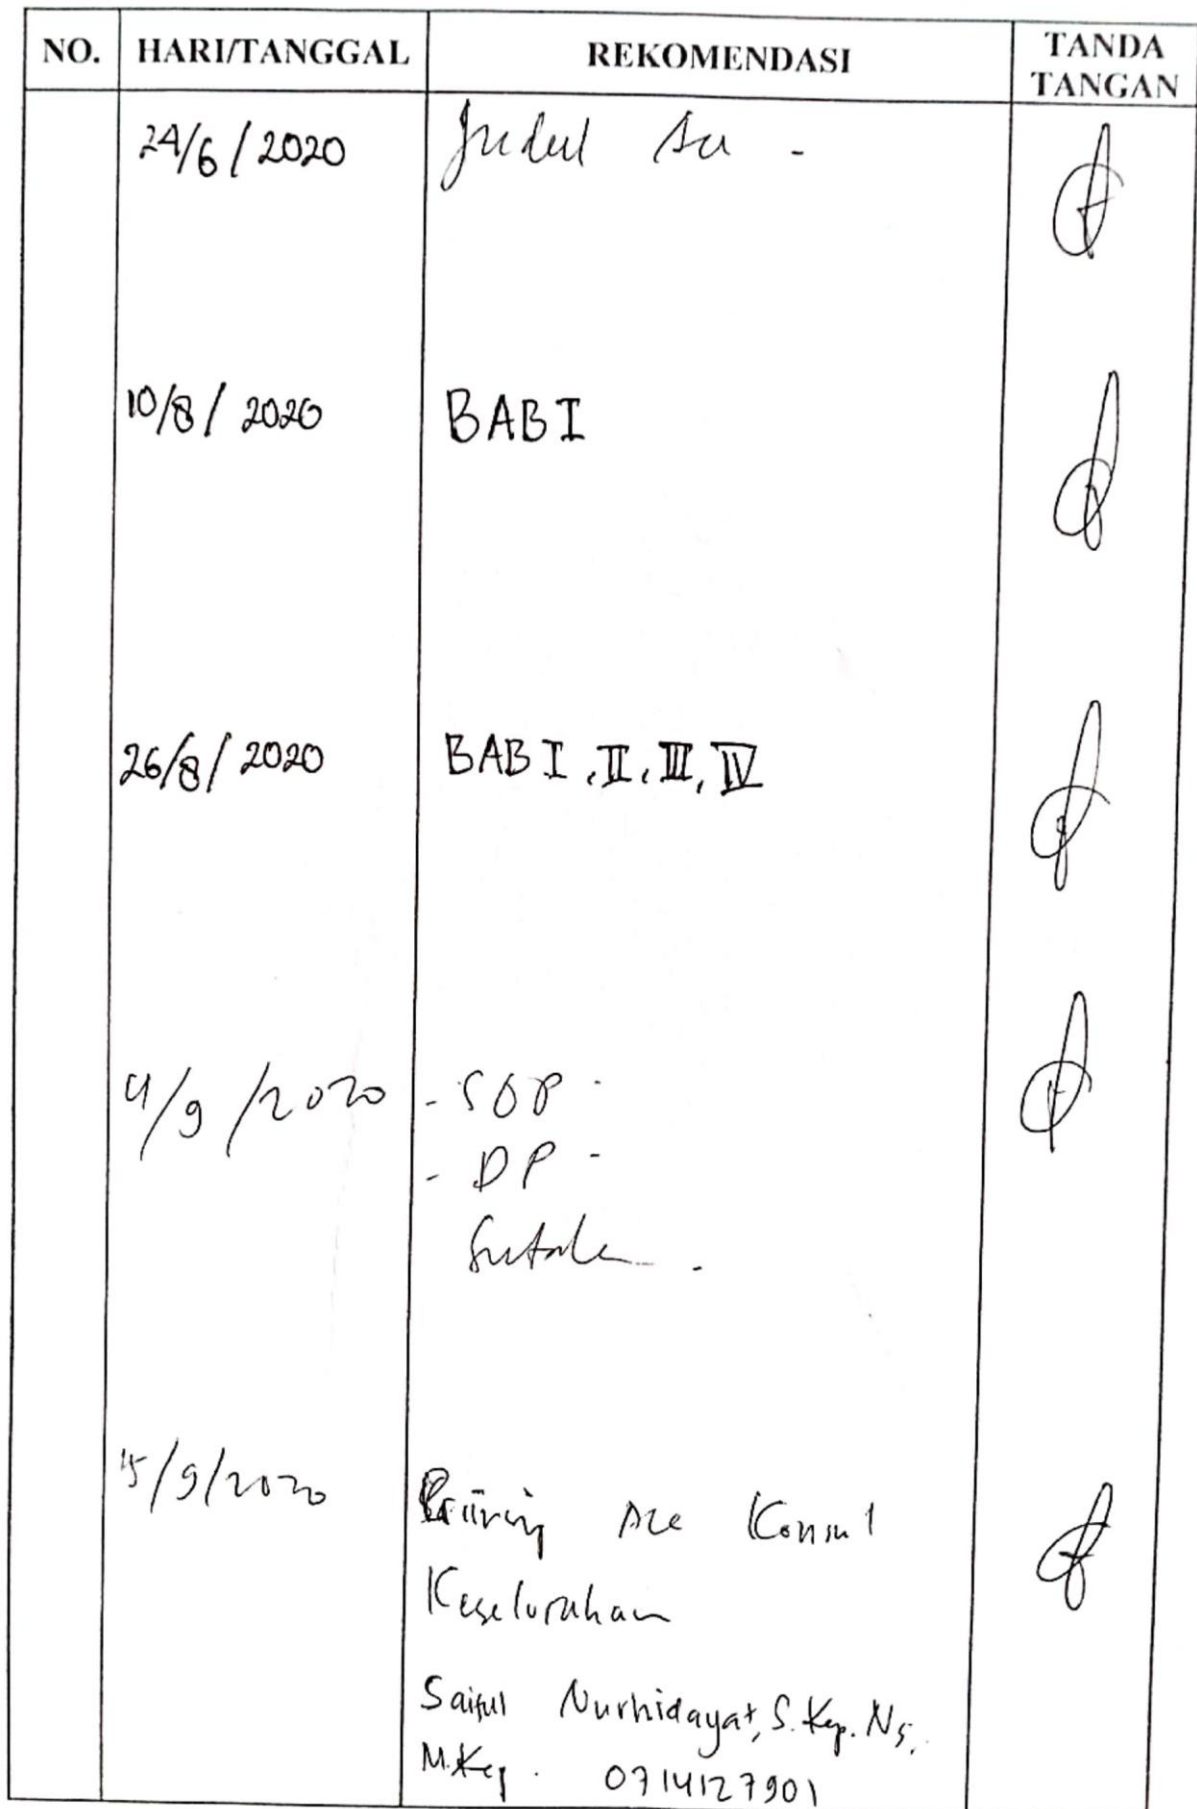 NO. HARI/TANGGAL REKOMENDASI TANDA TANGAN
24/6/2020 Judul
10/8/2020 BAB I
26/8/2020 BAB I, II, III, IV
4/9/2020 - SOP -
- DP -
15/9/2020 Konsul
Keseluruhan
Saiful Nurhidayat, S.Kep. Ns.
M.Kep. 0714127901